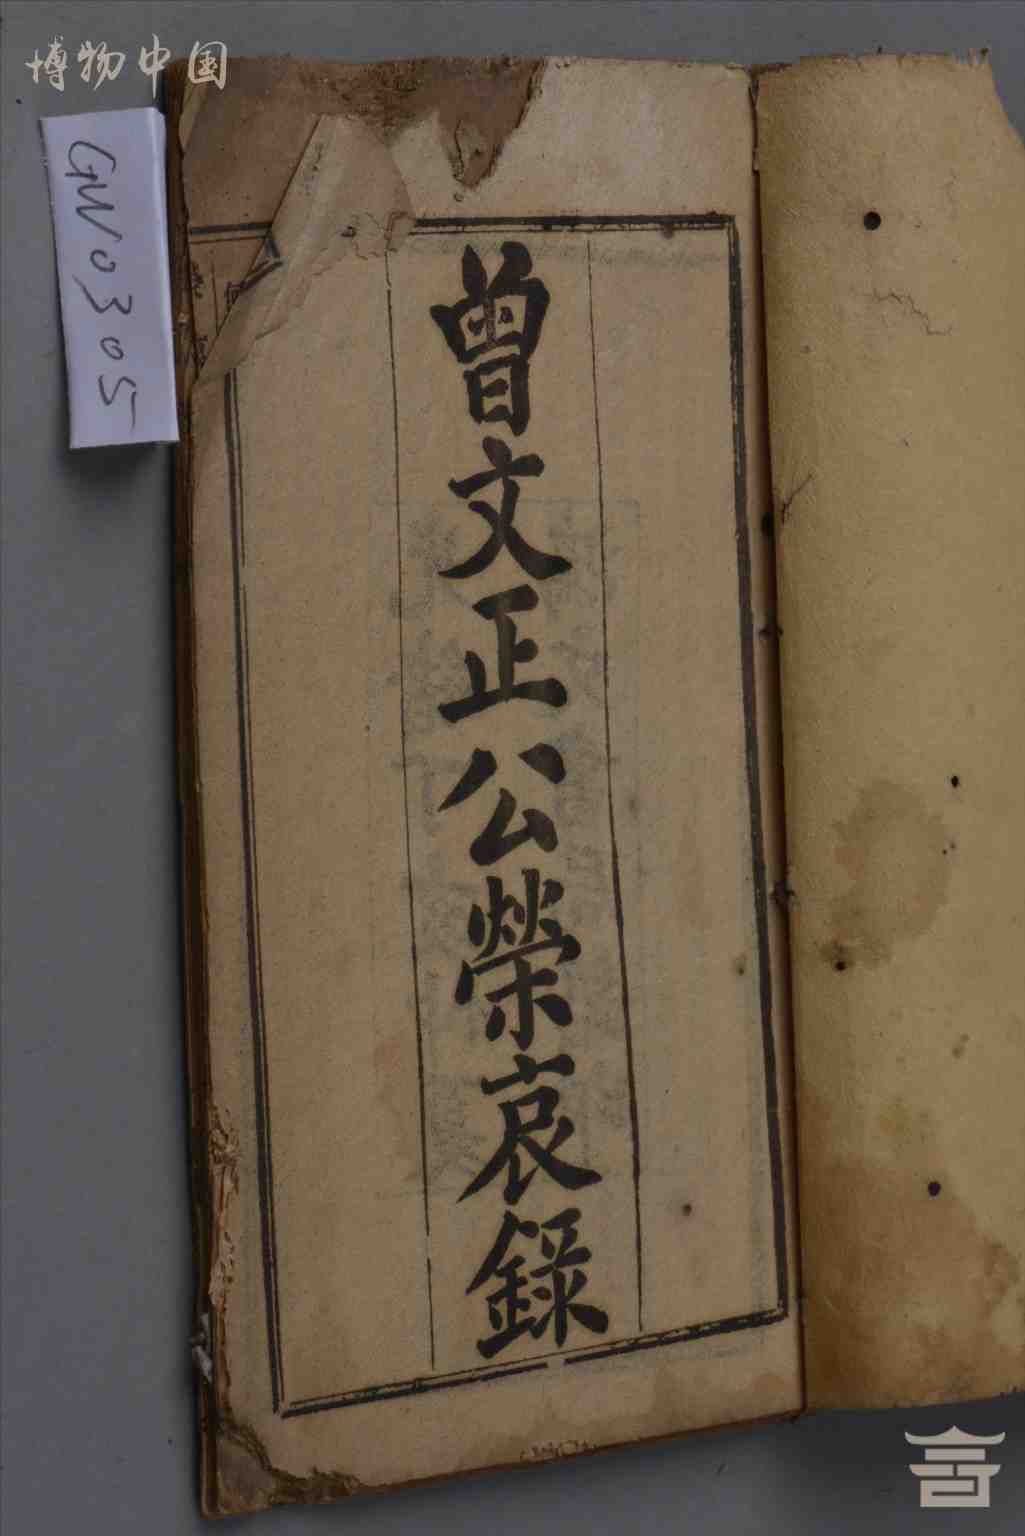 博物中国
GW0305
曾文正公榮哀錄